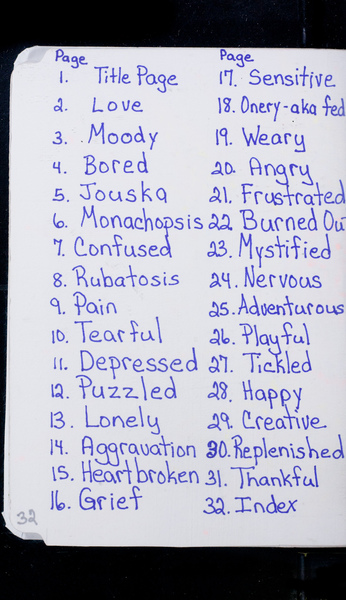 Page
1. Title Page
2. Love
3. Moody
4. Bored
5. Jouska
6. Monachopsis
7. Confused
8. Rubatosis
9. Pain
10. Tearful
11. Depressed
12. Puzzled
13. Lonely
14. Aggravation
15. Heartbroken
16. Grief
32
Page
17. Sensitive
18. Onery-aka fed
19. Weary
20. Angry
21. Frustrated
22 Burned Ou
23. Mystified
24. Nervous
25. Adventurous
26. Playful
27. Tickled
28. Happy
29. Creative
30. Replenished
31. Thankful
32. Index